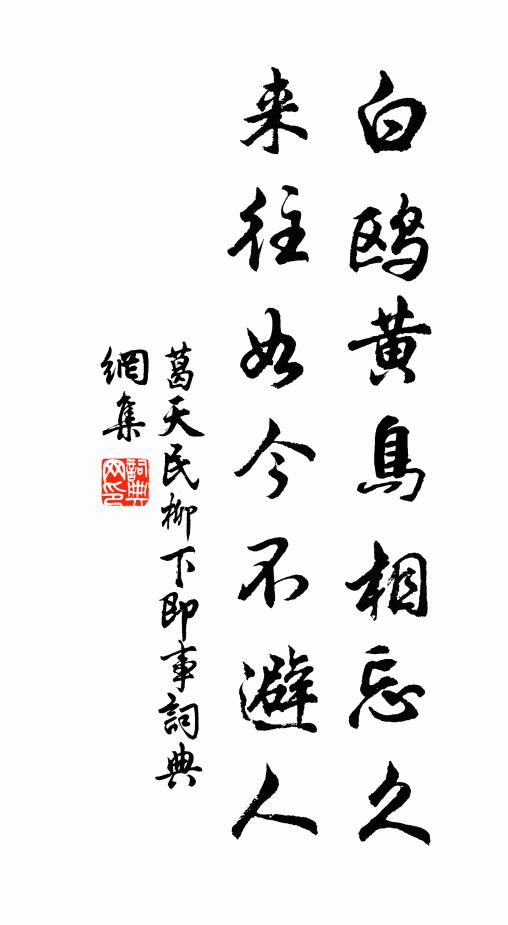 白鸥黄鳥相忘久
来往如今不避人
葛天民柳下即事詞典
網集
詞典网印